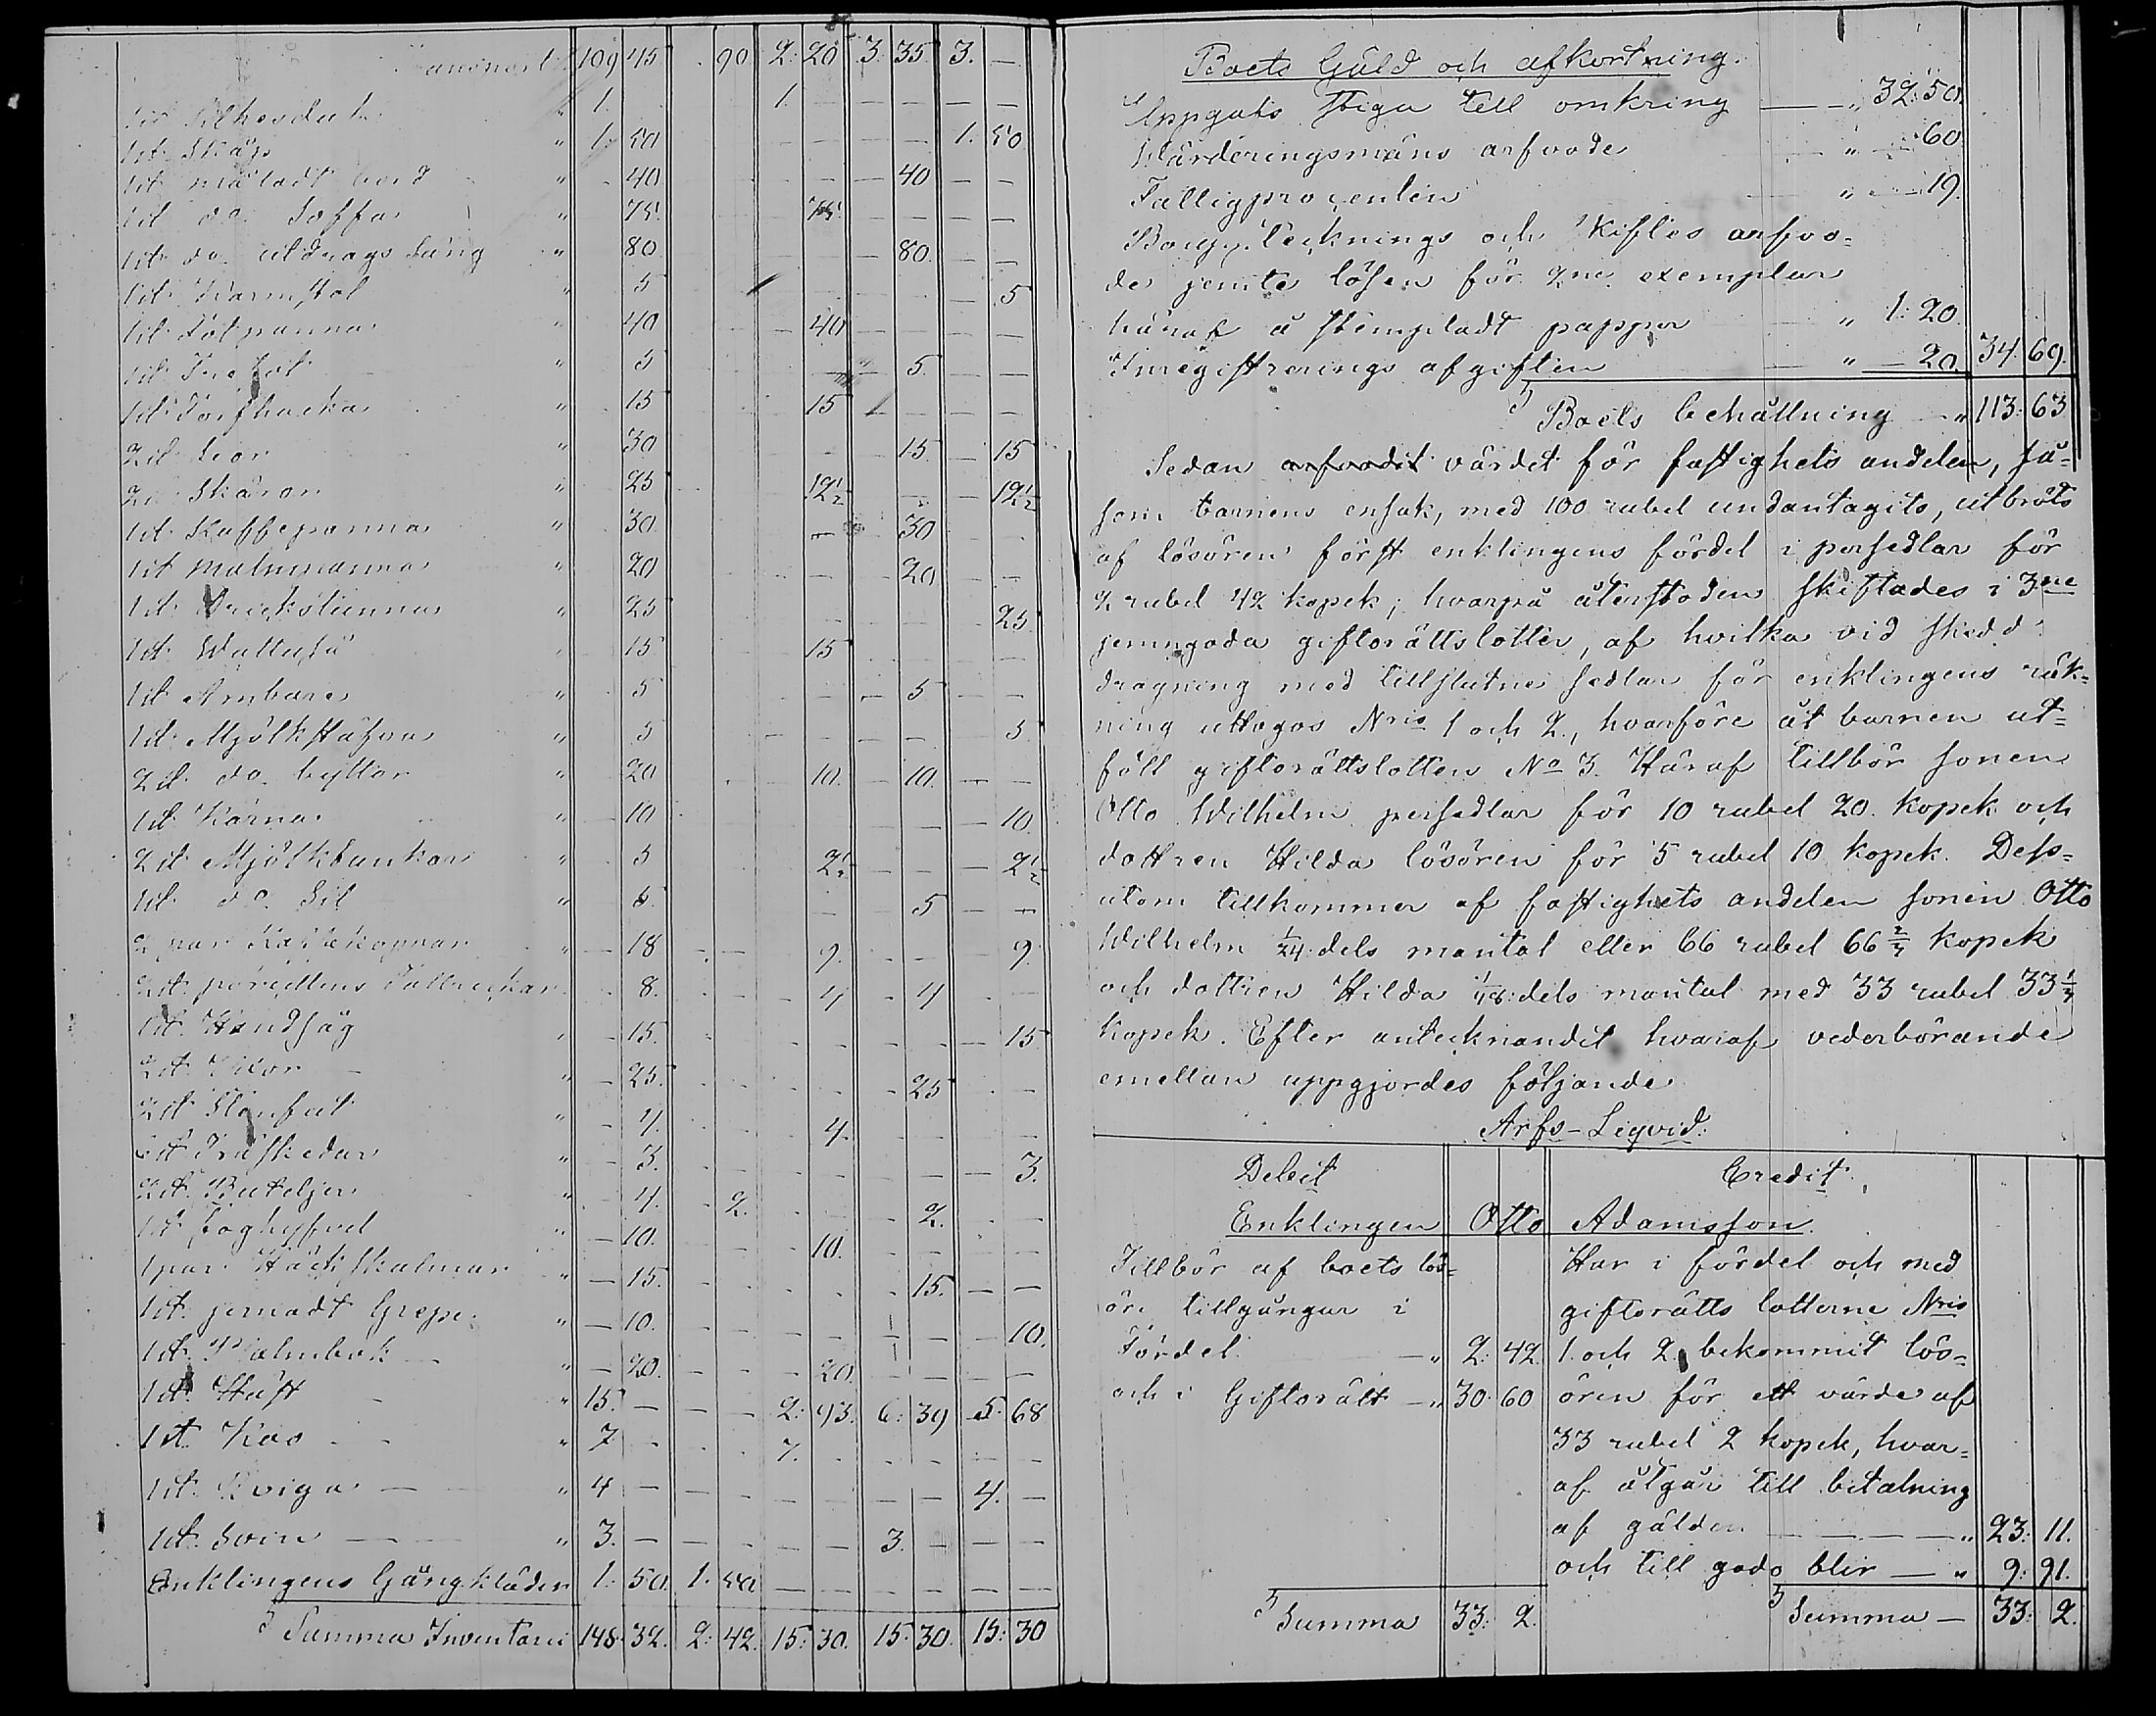 Transport 109 45 . 90 2: 20 3: 35 3. —
1. 1. — — — — —
1 st. Skåp " 1. 50 — — — — 1. 50
1 st. måladt bord " 40 — — — 40 — —
1 st. do Soffa " 75. 75. — — — —
1 st. do utdrags säng " 80 — 80. — —
1 st. Karmstol " 5 — 5
1 st. Fotpanna " 40 40 — — — —
1 st. " 5 — 5. — —
1 st. Torfhacka " 15 15 — — — —
2 st. Liar " 30 — 15 — 15
2 st. Skäror " 25 12½ — — — 12½
1 st. Kaffepanna " 30 — 30
1 st. Malmpanna " 20 — — 20 — —
1 st. Drickstunna " 25 25.
1 st. Wattuså 15 15 — — — —
1 st. Ämbare " 5 — — — 5 — —
1 st. Mjölkstäfva " 5 — — — — 5
2 st. do byttor " 20 10. — 10. — —
1 st. Kärna " — 10 — — 10.
2 st. Mjölkbunkar " 5 2½ — — — 2½
1 st. do Sil " 5. — 5 — —
2 par Kaffekoppar " — 18 — 9. 9.
2 st. porcellens Tallrickar 8. 4 . 4
1 st. Handsåg 15. — 15
2 st. " — 25. 25
2 st. Stenfat — 4. 4.
st. Träskedar " — 3. — 3.
2 st. Buteljer " 4. 2. 2.
1 st. Foghyfvel — 10. 10.
1 par Häckskalmar " — 15. 15. — —
1 st. jernadt Grepe " — 10. 10.
1 st. Psalmbok — " — 20. 20.
1 st. Häst " 15. — — — 2: 93. 6: 39 5: 68
1 st. Koo " 7. 7.
1 st. Kviga — " 4 — — — — — — — 4. —
1 st. Svin — " 3. — — — — — 3. — — —
Enklingens Gångkläder 1. 50. 1. 50 — — — — — —
Summa Inventarii 148. 32. 2: 42. 15: 30. 15: 30. 15: 30
Boets Gäld och afkortning.
Uppgats stiga till omkring — " 32: 50.
Värderingsmäns arfvode — " — 60
Fattigprocenten — " — 19.
Boupptecknings och Skiftes arfvo=
de jemte lösen för 2ne exemplar
häraf å stempladt papper — " 1: 20
Inregistrerings afgiften — " — 20. 34. 69.
Boets behållning — " 113: 63
Sedan arfvodet värdet för fastighets andelen, så=
som barnens ensak, med 100 rubel undantagits, utbröts
af lösören först enklingens fördel i persedlar för
2 rubel 42 kopek; hvarpå återstoden skiftades i 3ne
jemngoda giftorättslotter, af hvilka vid skedd
dragning med tillslutne sedlar för enklingens räk=
ning uttogos Nris 1 och 2., hvarföre åt barnen ut=
föll giftorättslotten No 3. Häraf tillbör sonen
Otto Wilhelm persedlar för 10 rubel 20. kopek och
dottren Hilda lösören för 5 rubel 10 kopek. Dess=
utom tillkommer af fastighets andelen sonen Otto
Wilhelm 1/24 dels mantal eller 66 rubel 66 2/3 kopek
och dottren Hilda 1/48 dels mantal med 33 rubel 33 1/3
kopek. Efter antecknandet hvaraf vederbörande
emellan uppgjordes följande
Arfs-Liqvid:
Debet Credit.
Enklingen Otto Adamsson.
Tillbör af boets lös=
öre tillgångar i
Fördel — " 2: 42
och i Giftorätt — " 30. 60
Summa 33: 2.
Har i fördel och med
giftorätts lotterne Nris
1. och 2. bekommit lös=
ören för ett värde af
33 rubel 2 kopek, hvar=
af åtgår till betalning
af gälden — — — — " 23: 11.
och till godo blir — " 9: 91.
Summa — 33: 2.